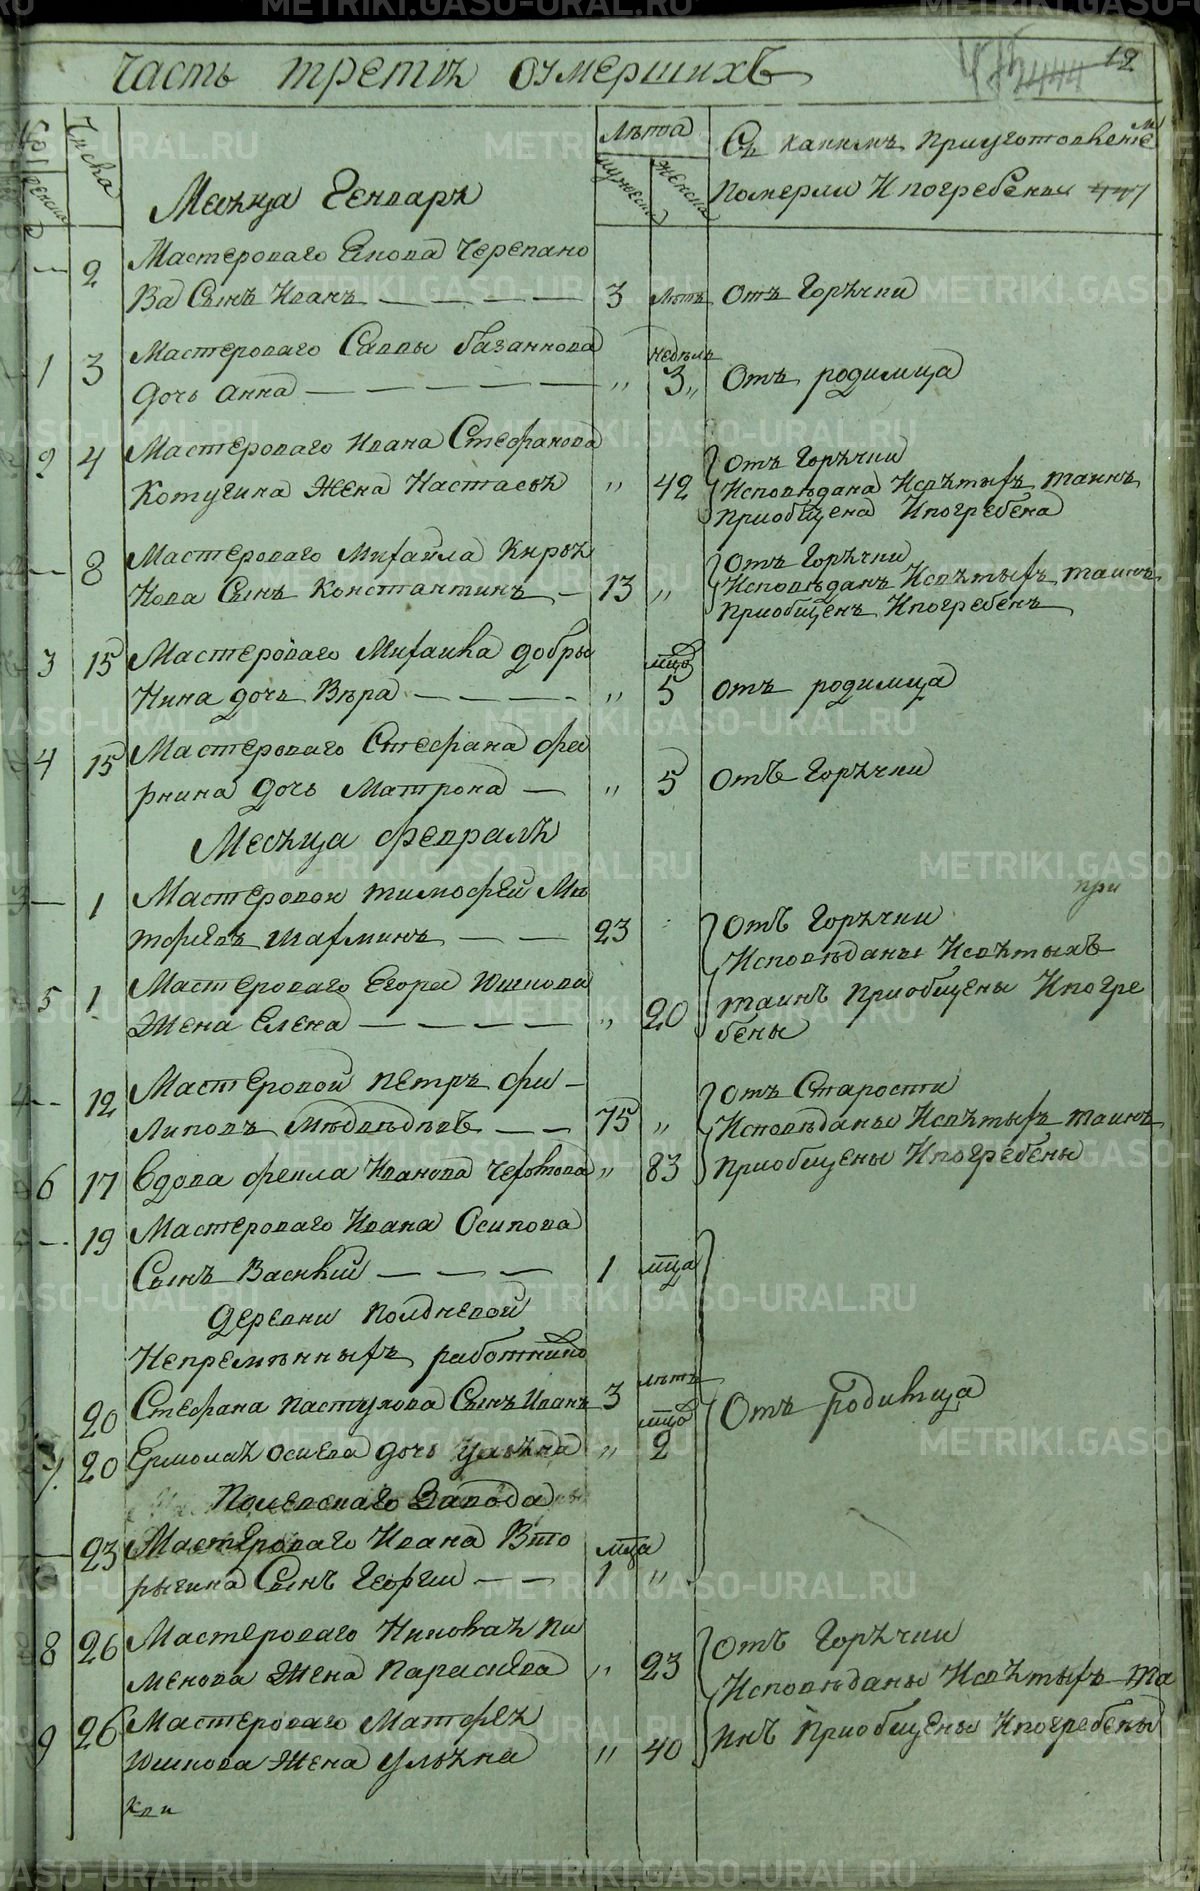 Часть третія оумершихъ
12
Числа
Женска
Месяца Генваря
Лѣта
мужеска
женска
Съ какимъ приуготовленіем
померли и погребены
— 2 Мастероваго Якова Черепано
ва Сынъ Иванъ — — — — 3 лѣтъ Отъ Горячки
1 3 Мастероваго Саввы базанкова недѣль
Дочь анна — — — — „ 3 „ Отъ родимца
2 4 Мастероваго Ивана Стефанова Отъ Горячки
Котугина Жена Настасья „ 42 Исповѣдана Исвятыхъ таинъ
Приобщена Ипогребена
— 8 Мастероваго Михайла Кирья Отъ Горячки
Нова Сынъ Константинъ — 13 „ Исповѣданъ Исвятыхъ таинъ
Приобщенъ Ипогребенъ
3 15 Мастероваго Михаила добры мцовъ
Нина дочь Вѣра — — — — „ 5 отъ родимца
4 15 Мастероваго Стефана фи
рнина дочь Матрона — „ 5 Отъ Горячки
Месяца февраля
— 1 Мастеровой тимофей Ма при
тфѣевъ шахминъ — — 23 Отъ Горячки
Исповѣданы Исвятыхъ
5 1 Мастероваго Егора Юшкова таинъ Приобщены Ипогре
Жена Елена — — — — „ 20 бены
— 12 Мастеровой петръ фи — Отъ Старости
липовъ Медвѣдевъ — — 75 „ Исповѣданы Исвятыхъ таинъ
6 17 Вдова фекла Иванова Чехотова „ 83 Приобщены Ипогребены
— 19 Мастероваго Ивана Осипова
Сынъ Василий — — — 1 мца
Деревни Полдневой
Непремѣнныхъ работниковъ
лѣтъ
20 Стефана пастухова Сынъ Иванъ 3 Отъ родимца
мцовъ
7 20 Ермолая осиева дочь Ульяна „ 2
Полевскаго Завода
— 23 Мастероваго Ивана Вто мца
рыгина Сынъ Георгий — — 1 „
8 26 Мастероваго Николая Пи Отъ Горячки
менова Жена Параскева „ 23 Исповѣданы Исвятыхъ Та
9 26 Мастероваго Матфея инъ Приобщены Ипогребены
Юшкова Жена Ульяна „ 40